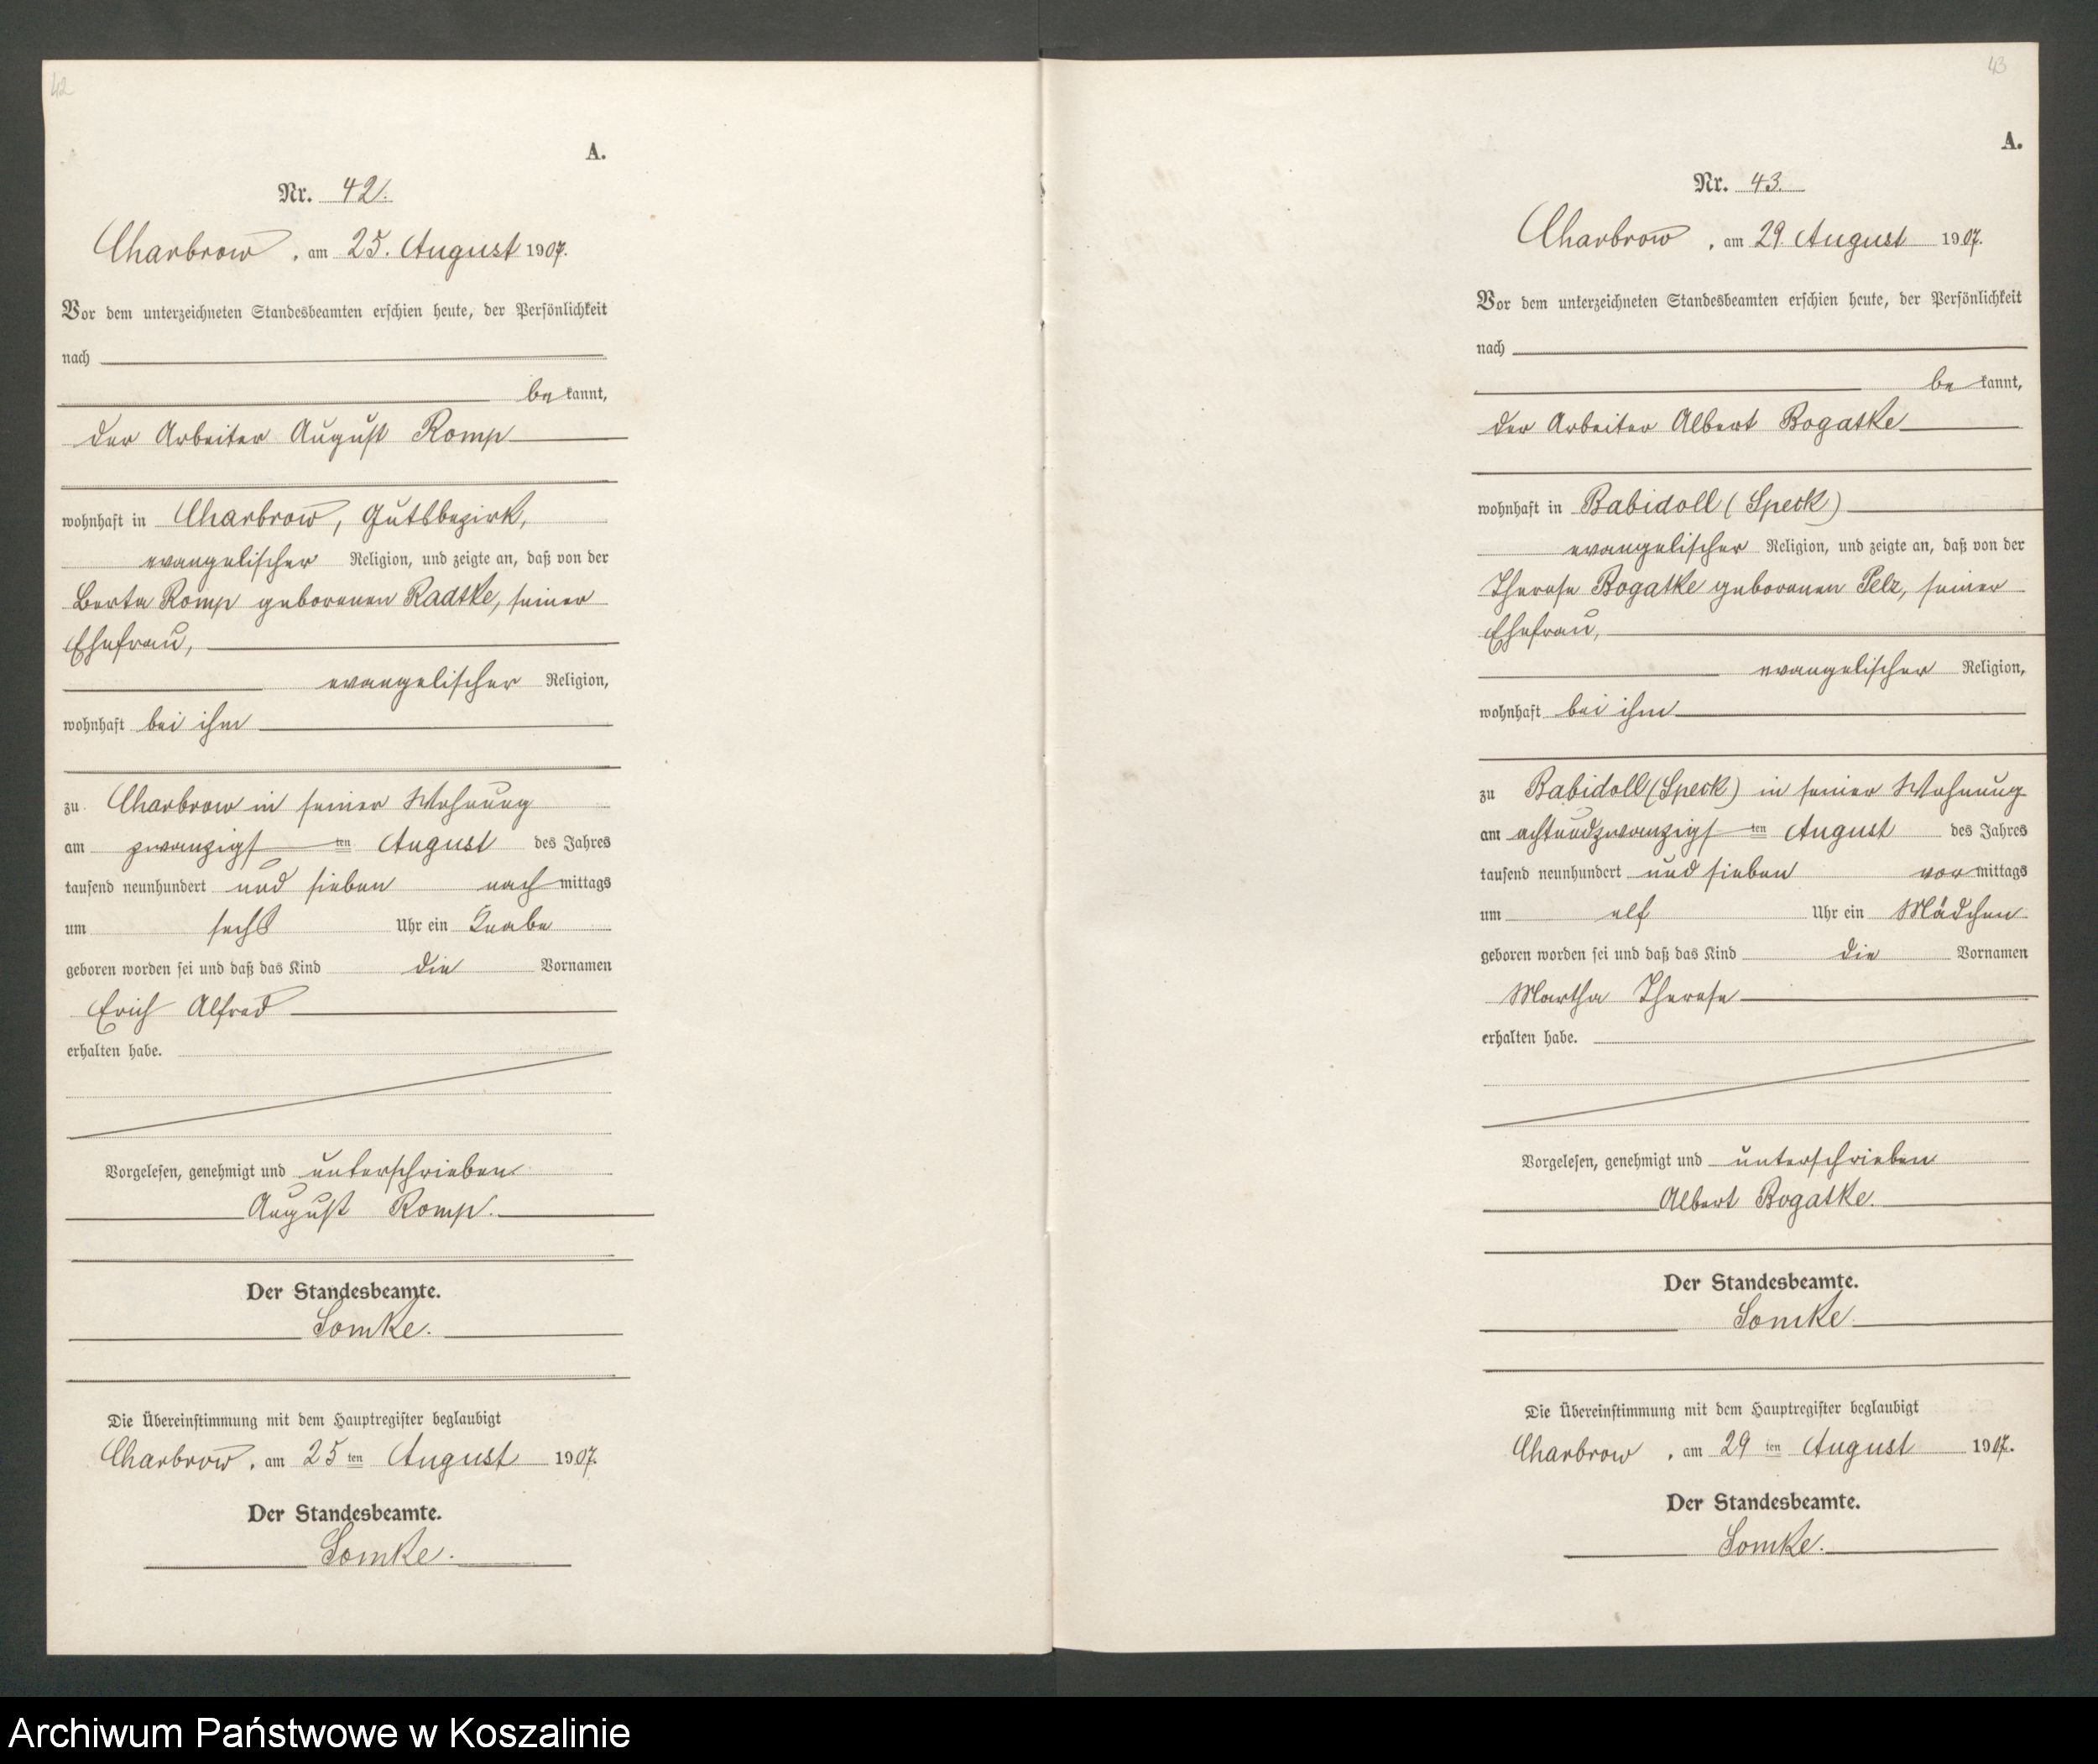 42
A.
Nr. 42.
Charbrow, am 25. August 1907.
Vor dem unterzeichneten Standesbeamten erschien heute, der Persönlichkeit
nach
bekannt,
der Arbeiter August Romp
wohnhaft in Charbrow, Gutsbezirk,
evangelischer Religion, und zeigte an, daß von der
Berta Romp geborenen Radtke, seiner
Ehefrau,
evangelischer Religion,
wohnhaft bei ihm
zu Charbrow in seiner Wohnung
am zwanzigsten August des Jahres
tausend neunhundert und sieben nachmittags
um sechs Uhr ein Knabe
geboren worden sei und daß das Kind die Vornamen
Erich Alfred
erhalten habe.
Vorgelesen, genehmigt und unterschrieben
August Romp.
Der Standesbeamte.
Lomke.
Die Übereinstimmung mit dem Hauptregister beglaubigt
Charbrow, am 25ten August 1907.
Der Standesbeamte.
Lomke.
43
A.
Nr. 43.
Charbrow, am 29 August 1907.
Vor dem unterzeichneten Standesbeamten erschien heute, der Persönlichkeit
nach
bekannt,
der Arbeiter Albert Bogatke
wohnhaft in Babidoll (Speck)
evangelischer Religion, und zeigte an, daß von der
Therese Bogatke geborenen Pelz, seiner
Ehefrau,
evangelischer Religion,
wohnhaft bei ihm
zu Babidoll (Speck) in seiner Wohnung
am achtundzwanzigsten August des Jahres
tausend neunhundert und sieben vormittags
um elf Uhr ein Mädchen
geboren worden sei und daß das Kind die Vornamen
Martha Therese
erhalten habe.
Vorgelesen, genehmigt und unterschrieben
Albert Bogatke.
Der Standesbeamte.
Lomke.
Die Übereinstimmung mit dem Hauptregister beglaubigt
Charbrow, am 29ten August 1907.
Der Standesbeamte.
Lomke.
Archiwum Państwowe w Koszalinie